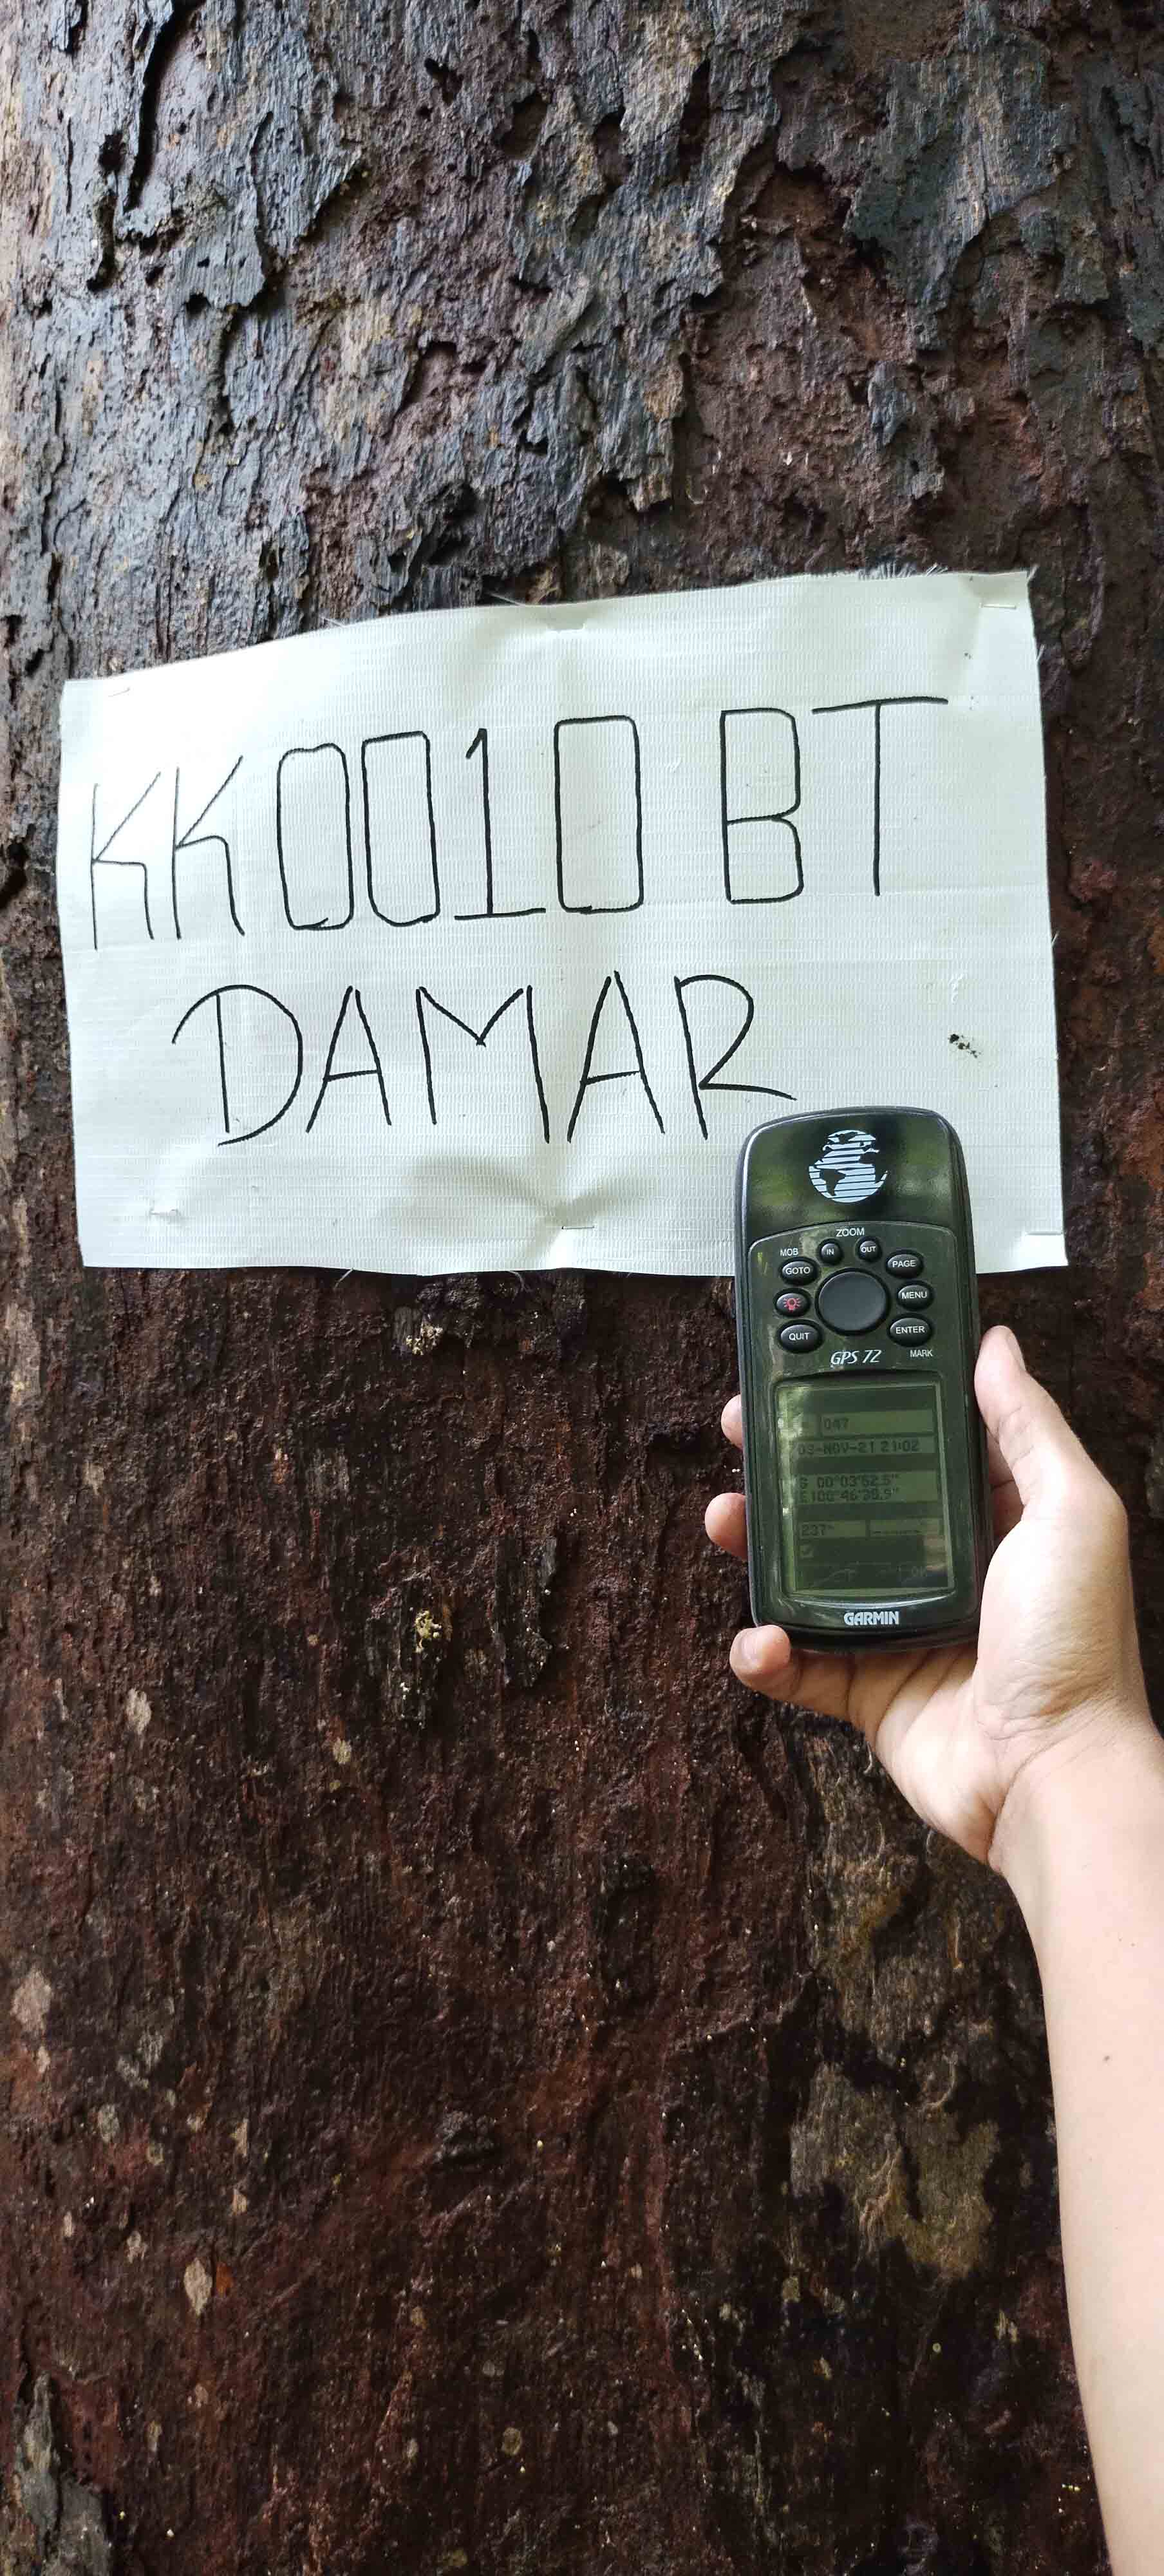 KK0010 BT
DAMAR
ZOOM
MOB
IN
OUT
GOTO
PAGE
MENU
QUIT
ENTER
MARK
GPS 72
047
03-NOV-21 21:02
S 00°03'52.5"
E100°46'39.9"
GARMIN